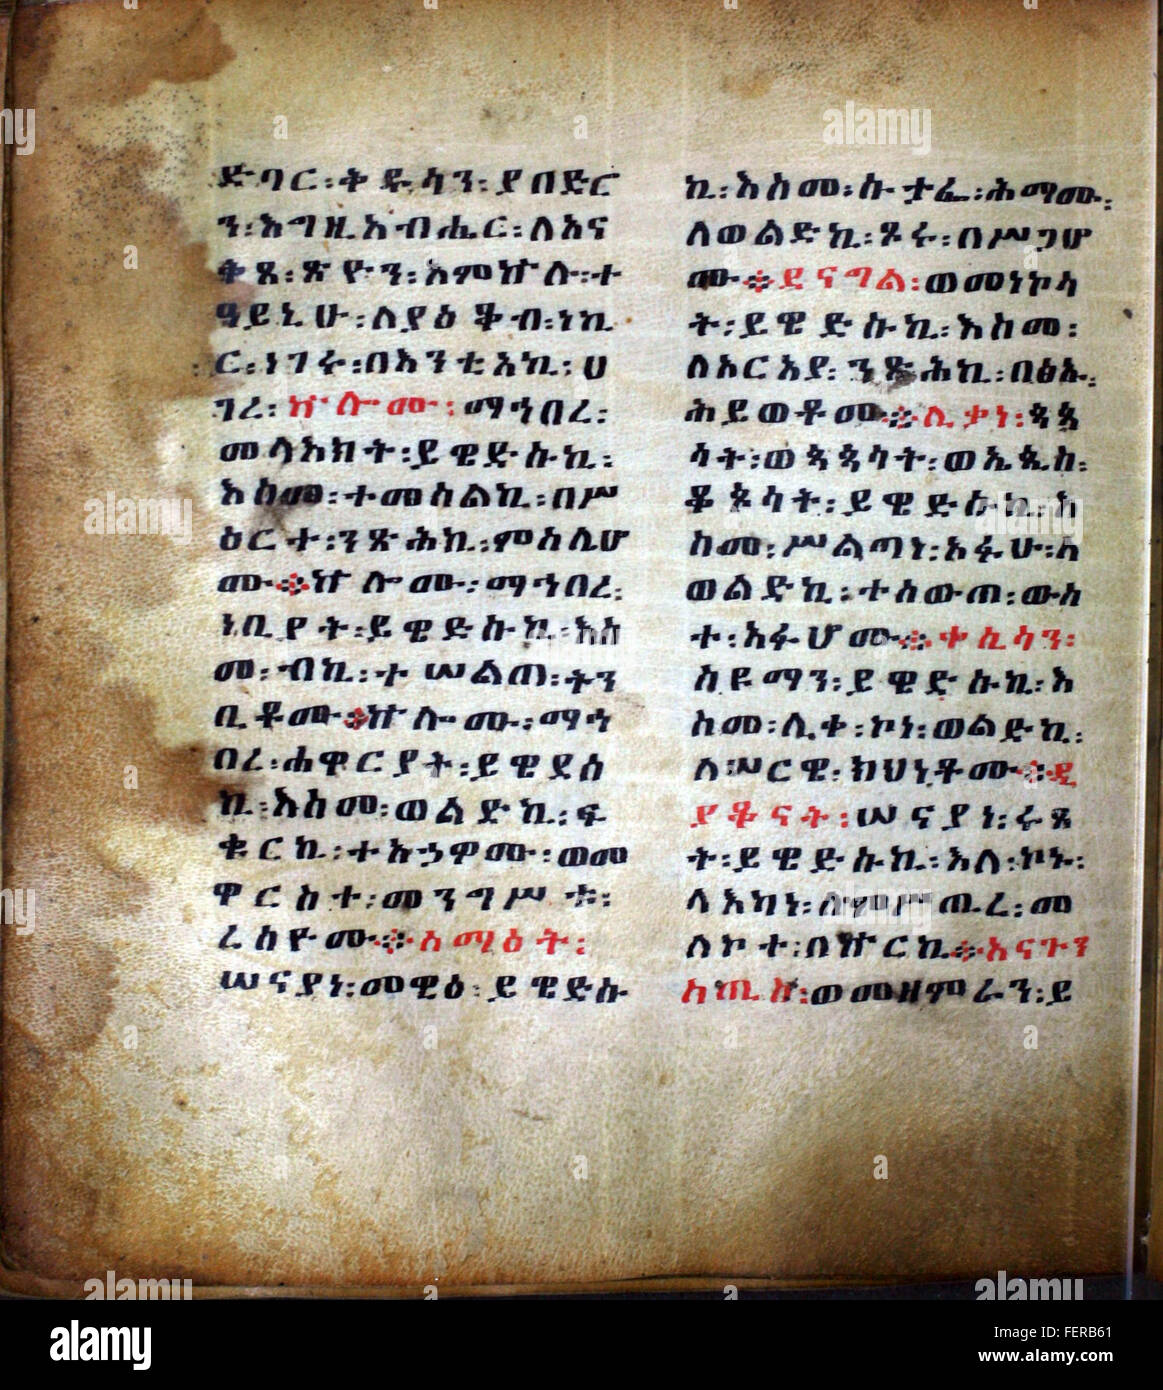 ድባር፡ቅዱሳን፡ያበድር
ን፡እግዚአብሔር፡ለአና
ቅጸ፡ጽዮን፡እምኵሉ፡ተ
ዓይኒሁ፡ለያዕቆብ፡ነኪ
ር፡ነገሩ፡በእንቲአኪ፡ሀ
ገረ፡ኵሎሙ፡ማኅበረ፡
መላእክት፡ይዌድሱኪ፡
እስመ፡ተመሰልኪ፡በሥ
ዕርተ፡ንጽሕኪ፡ምስሊሆ
ሙ፨ኵሎሙ፡ማኅበረ፡
ነቢያት፡ይዌድሱኪ፡እስ
መ፡ብኪ፡ተሠልጠ፡ትን
ቢቶሙ፨ኵሎሙ፡ማኅ
በረ፡ሐዋርያት፡ይዌደስ
ኪ፡እስመ፡ወልድኪ፡ፍ
ቁርኪ፡ተአኃዎሙ፡ወመ
ዋርስተ፡መንግሥቱ፡
ረሰዮሙ፨ሰማዕት፡
ሠናያነ፡መዊዕ፡ይዌድሱ
ኪ፡እስመ፡ሱታፌ፡ሕማሙ፡
ለወልድኪ፡ጾሩ፡በሥጋሆ
ሙ፨ደናግል፡ወመነኮሳ
ት፡ይዌድሱኪ፡እስመ፡
ለአርአያ፡ንጽሕኪ፡በፅኡ፡
ሕይወቶሙ፨ሊቃነ፡ጳጳ
ሳት፡ወጳጳሳት፡ወኤጲስ፡
ቆጶሳት፡ይዌድሱኪ፡እ
ስመ፡ሥልጣነ፡አፉሁ፡ለ
ወልድኪ፡ተሰውጠ፡ውስ
ተ፡አፉሆሙ፨ቀሲሳን፡
ስዩማን፡ይዌድሱኪ፡እ
ስመ፡ሊቀ፡ኮነ፡ወልድኪ፡
ለሠርዌ፡ክህነቶሙ፨ዲ
ያቆናት፡ሠናያነ፡ሩጸ
ት፡ይዌድሱኪ፡እለ፡ኮኑ፡
ላእካነ፡ለምሥጢረ፡መ
ለኮተ፡በኵርኪ፨አናጉን
ስጢስ፡ወመዘምራን፡ይ